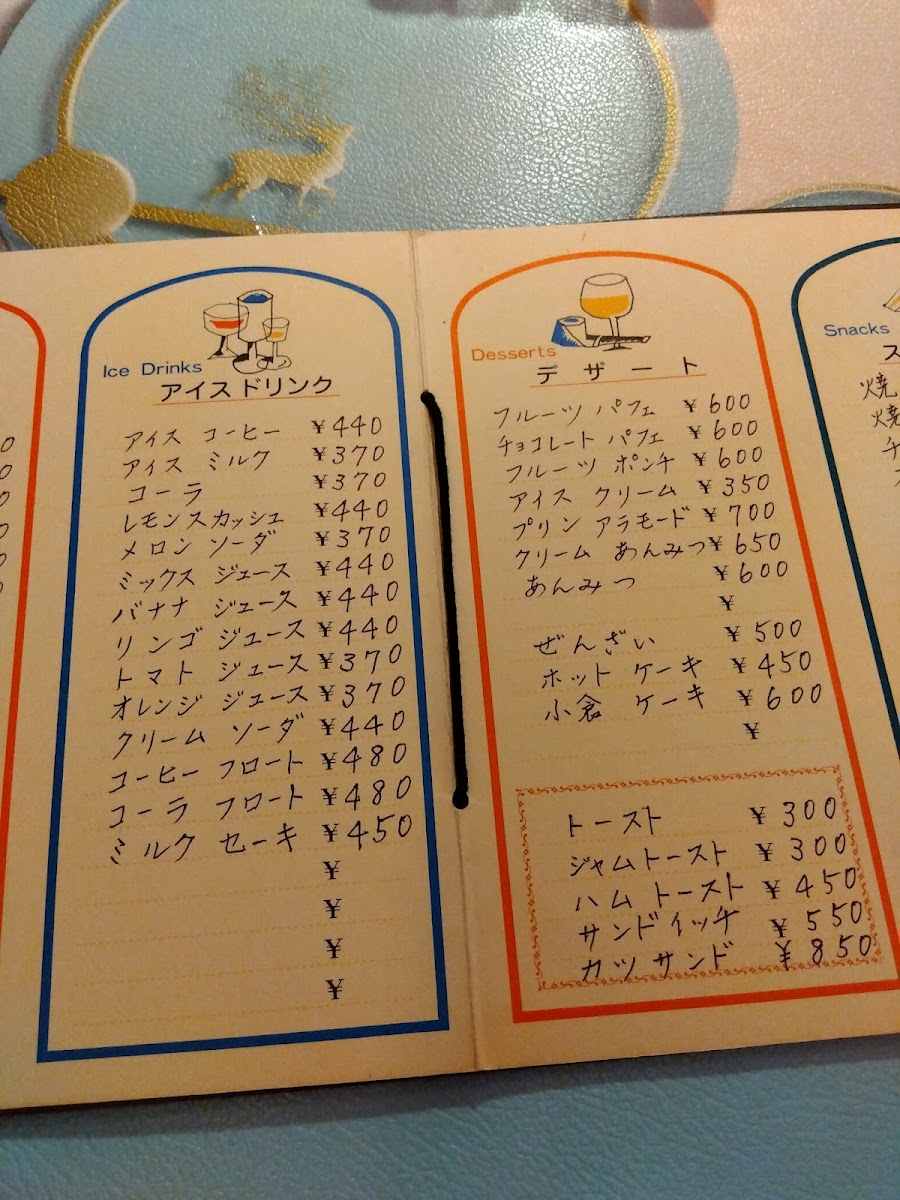 Ice Drinks
アイスドリンク
アイス コーヒー ¥440
アイス ミルク ¥370
コーラ ¥370
レモンスカッシュ ¥440
メロン ソーダ ¥370
ミックス ジュース ¥440
バナナ ジュース ¥440
リンゴ ジュース ¥440
トマト ジュース ¥370
オレンジ ジュース ¥370
クリーム ソーダ ¥440
コーヒー フロート ¥480
コーラ フロート ¥480
ミルク セーキ ¥450
¥
¥
¥
¥
Desserts
デザート
フルーツ パフェ ¥600
チョコレート パフェ ¥600
フルーツ ポンチ ¥600
アイス クリーム ¥350
プリン アラモード ¥700
クリーム あんみつ ¥650
あんみつ ¥600
¥
ぜんざい ¥500
ホット ケーキ ¥450
小倉 ケーキ ¥600
¥
トースト ¥300
ジャムトースト ¥300
ハム トースト ¥450
サンドイッチ ¥550
カツ サンド ¥850
Snacks
ス
焼
焼
チ